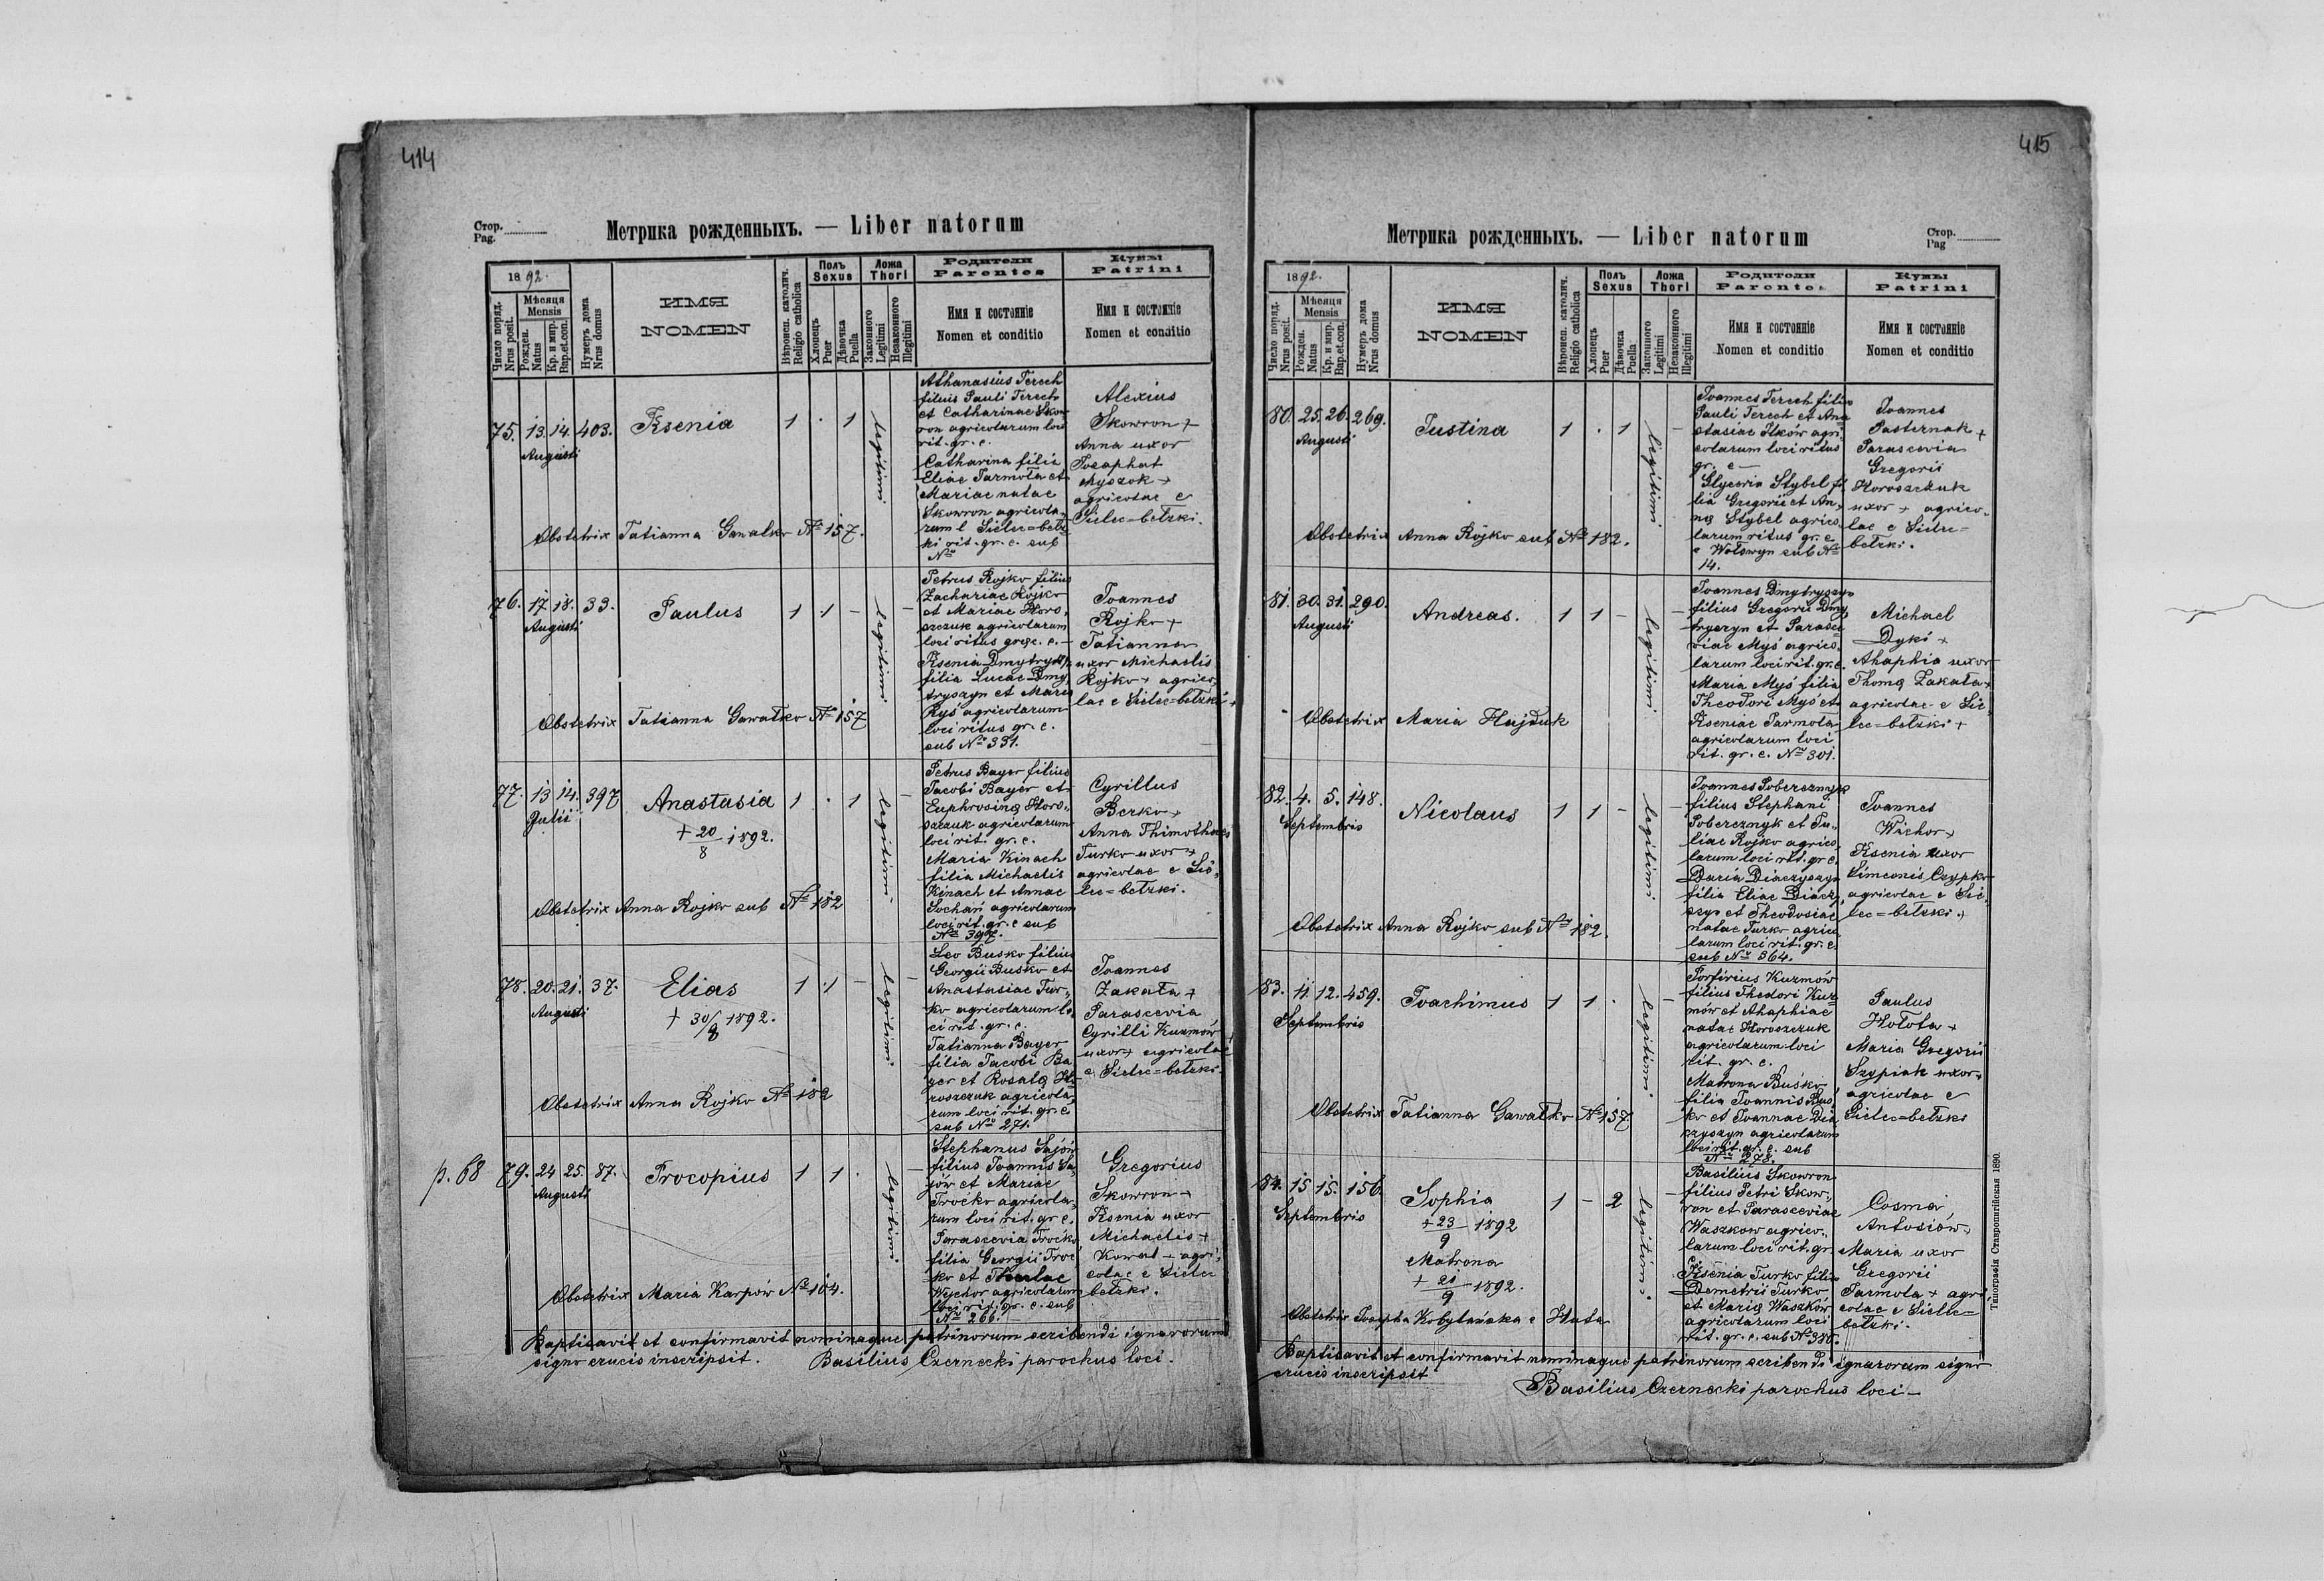 414
Стор.
Pag.
Метрика рожденныхъ. — Liber natorum
1892.
Число поряд.
Nrus posit.
Мѣсяця
Mensis
Рожден.
Natus
Кр. и мир.
Bap.et.con.
Нумеръ дома
Nrus domus
ИМЯ
NOMEN
Вѣроисп. католич.
Religio catholica
Полъ
Sexus
Хлопецъ
Puer
Дѣвочка
Puella
Ложа
Thori
Законного
Legitimi
Незаконного
Illegitimi
Родители
Parentes
Имя и состоянiе
Nomen et conditio
Кумы
Patrini
Имя и состоянiе
Nomen et conditio
75. 13. 14. 403. Ksenia 1 . 1
Augusti
legitimi
Athanasius Terech
filius Pauli Terech
et Catharinae Skow
ron agricolarum loci
rit. gr. c.
Catharina filia
Eliae Jarmoła et
Mariae natae
Skowron agricola,
rum e Sielec=bełz
ki rit. gr. c. sub
No
Alexius
Skowron +
Anna uxor
Josaphat
Myszok +
agricolae e
Sielec=bełzki.
Obstetrix Tatianna Gawałko No 157.
76. 17. 18. 33. Paulus 1 1 –
Augusti
legitimi
Petrus Rojko filius
Zachariae Rojko
et Mariae Horo,
szczuk agricolarum
loci ritus graec. c. –
Ksenia Dmytryszyn
filia Lucae Dmy,
tryszyn et Maria
Ryś agricolarum
loci ritus gr. c.
sub No 331.
Joannes
Rojko +
Tatianna
uxor Michaelis
Rojko + agrico,
lae e Sielec=bełzki +
Obstetrix Tatianna Gawałko No 157
77. 13 14. 397 Anastasia 1 . 1
Julii
+ 20/8 1892.
legitimi
Petrus Bayer filius
Jacobi Bayer et
Euphrosina Horo,
szczuk agricolarum
loci rit. gr. c.
Maria Kinach
filia Michaelis
Kinach et Annae
Sochań agricolarum
loci rit. gr. c sub
No 397.
Cyrillus
Berko +
Anna Thimothaei
Turko uxor +
agricolae e Sie,
lec=bełzki.
Obstetrix Anna Rojko sub No 182
78. 20. 21. 37. Elias 1 1 –
Augusti
+ 30/8 1892.
legitimi
Leo Busko filius
Georgii Busko et
Anastasiae Tur,
ko agricolarum lo
ci rit. gr. c.
Tatianna Bayer
filia Jacobi Ba
yer et Rosala Ho
roszczuk agricola,
rum loci rit. gr. c
sub No 271.
Joannes
Zakała +
Parascevia
Cyrilli Kuzmów
uxor + agricolae
e Sielec=bełzki.
Obstetrix Anna Rojko No 182
p. 68 79. 24 25. 87. Procopius 1 1 .
Augusti
legitimi
Stephanus Sajów
filius Joannis Sa
jów et Mariae
Trocko agricola,
rum loci rit. gr c.
Parascevia Trocko
filia Georgii Troc
ko et Theclae
Wychor agricolarum
loci rit. gr. c. sub
No 266.
Gregorius
Skowron +
Ksenia uxor
Michaelis +
Kowal + agri,
colae e Sielec
bełzki.
Obstetrix Maria Karpów No 104.
Baptisavit et confirmavit nominaque patrinorum scribendi ignarorum
signo crucis inscripsit. Basilius Czernecki parochus loci.
415
Стор.
Pag
Метрика рожденныхъ. — Liber natorum
1892.
Число поряд.
Nrus posit.
Мѣсяця
Mensis
Рожден.
Natus
Кр. и мир.
Bap.et.con.
Нумеръ дома
Nrus domus
ИМЯ
NOMEN
Вѣроисп. католич.
Religio catholica
Полъ
Sexus
Хлопецъ
Puer
Дѣвочка
Puella
Ложа
Thori
Законного
Legitimi
Незаконного
Illegitimi
Родители
Parentes
Имя и состоянiе
Nomen et conditio
Кумы
Patrini
Имя и состоянiе
Nomen et conditio
80. 25. 26. 269. Justina 1 . 1 –
Augusti
legitimi
Joannes Terech filius
Pauli Terech et Ana
stasiae Ilków agri,
colarum loci ritus
gr. c –
Glyceria Stybel fi
lia Gregorii et An,
na Stybel agrico,
larum ritus gr. c.
e Wołswyn sub No
14.
Joannes
Pasternak +
Parascevia
Gregorii
Horoszczuk
uxor + agrico,
lae e Sielec=
bełzki.
Obstetrix Anna Rojko sub No 182.
81. 30. 31. 290. Andreas. 1 1 – –
Augusti
legitimi
Joannes Dmytryszyn
filius Gregorii Dmy
tryszyn et Parasce
viae Myś agrico,
larum loci rit. gr. c.
Maria Myś filia
Theodori Myś et
Kseniae Jarmola
agricolarum loci
rit. gr. c. No 301.
Michael
Dyki +
Ahaphia uxor
Thoma Zakała +
agricolae e Sie,
lec=bełzki +
Obstetrix Maria Hajduk
82. 4. 5. 148. Nicolaus 1 1 – –
Septembris
legitimi
Joannes Poberezny
filius Stephani
Pobereznyk et Ju,
liae Rojko agrico,
larum loci rit. gr c.
Daria Diaczyszyn
filia Eliae Diaczy,
szyn et Theodosiae
natae Turko agrico,
larum loci rit. gr. c.
sub No 364.
Joannes
Wichor +
Ksenia uxor
Simeonis Czypko
agricolae e Sie,
lec=bełzki. +
Obstetrix Anna Rojko sub No 182.
83. 11. 12. 459. Joachimus 1 1 . –
Septembris
legitimi
Porfirius Kuzmów
filius Thedori Kuz
mów et Ahaphiae
natae Horoszczuk
agricolarum loci
rit. gr. c.
Matrona Buśko
filia Joannis Bus,
ko et Joannae Dia
czyszyn agricolarum
loci rit. gr. c. sub
No 278.
Paulus
Hołota +
Maria Gregorii
Szypiak uxor +
agricolae e
Sielec=bełzki
Obstetrix Tatianna Gawałko No 157.
84. 15 15. 156. Sophia 1 – 2 –
Septembris
+ 23/9 1892
Matrona
+ 21/9 1892.
legitimi
Basilius Skowron
filius Petri Skow,
ron et Parasceviae
Waszkow agrico,
larum loci rit. gr.
c.
Ksenia Turko filia
Demetrii Turko
et Maria Waszków
agricolarum loci
rit. gr. c. sub No 380.
Cosma
Antosiów +
Maria uxor
Gregorii
Jarmola + agri
colae e Sielec=
bełzki.
Obstetrix Josepha Kobylańska e Huta
Baptisavit et confirmavit nominaque patrinorum scribendi ignarorum signo
crucis inscripsit
Basilius Czernecki parochus loci –
Типографiя Ставропигiйская 1890.